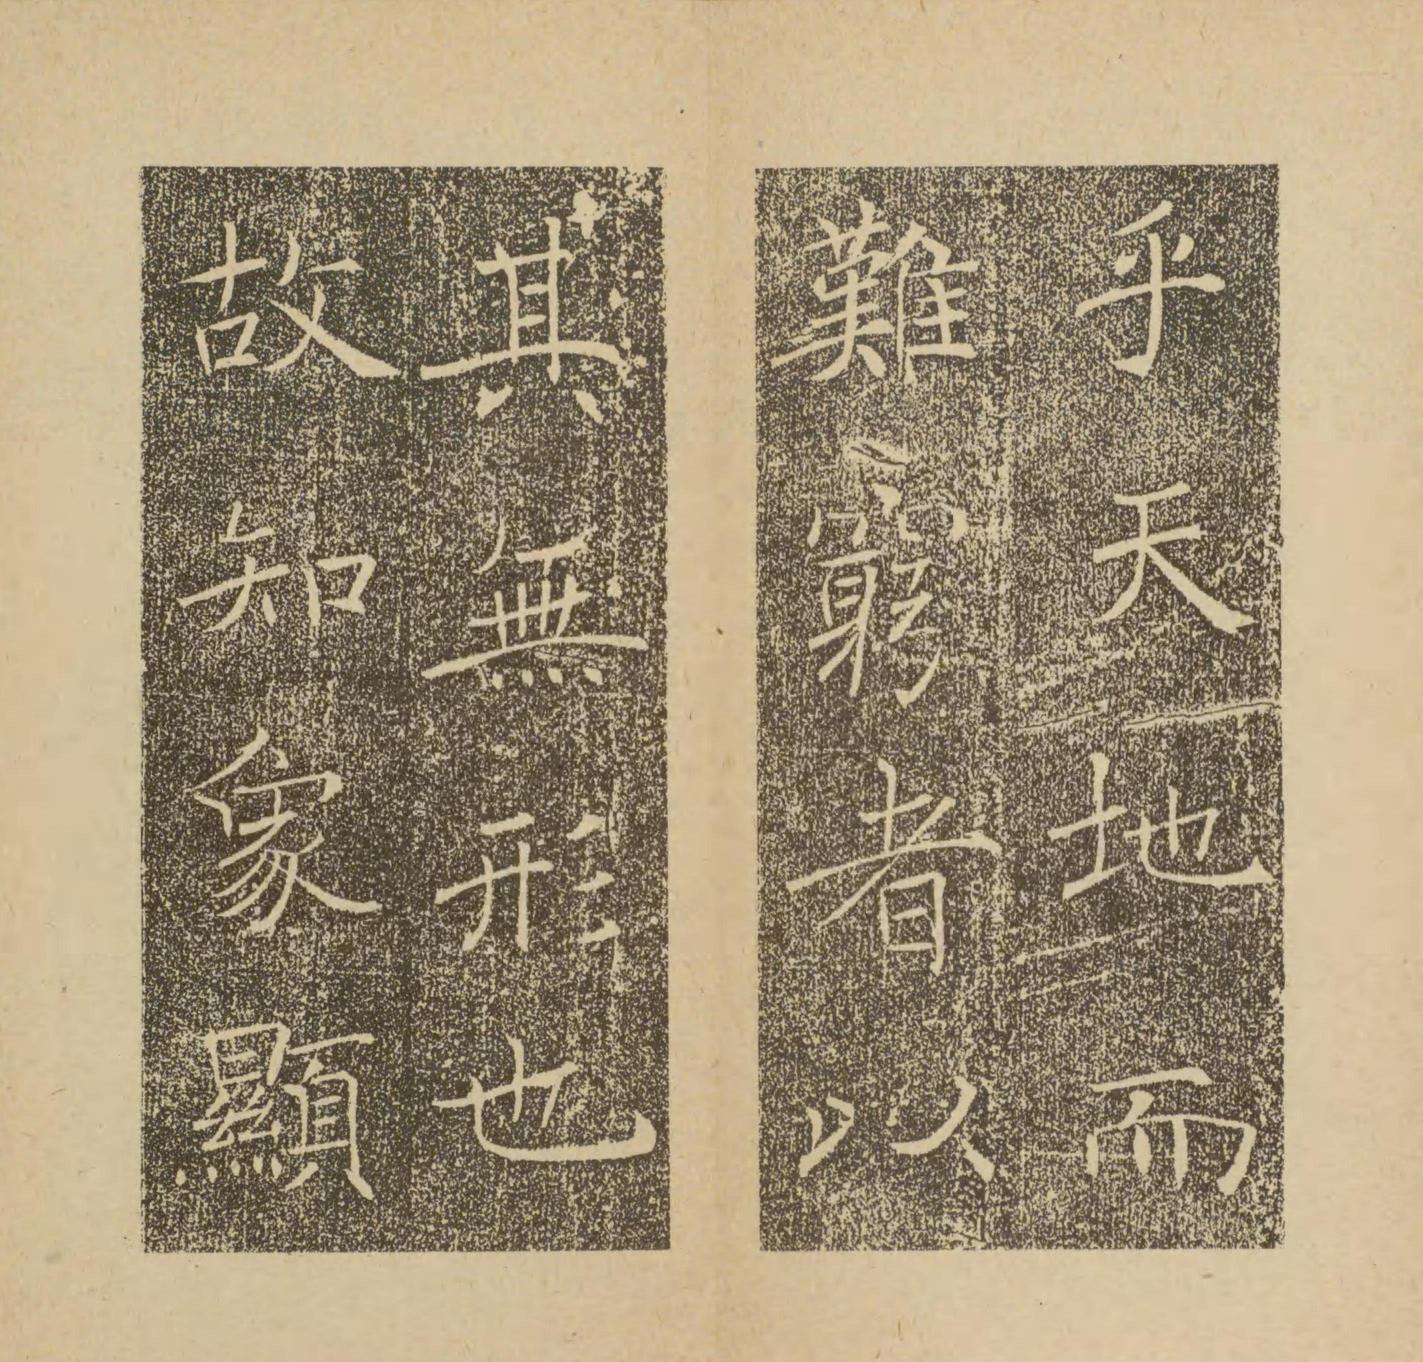 乎天地而
難窮者以
其無形也
故知象顯